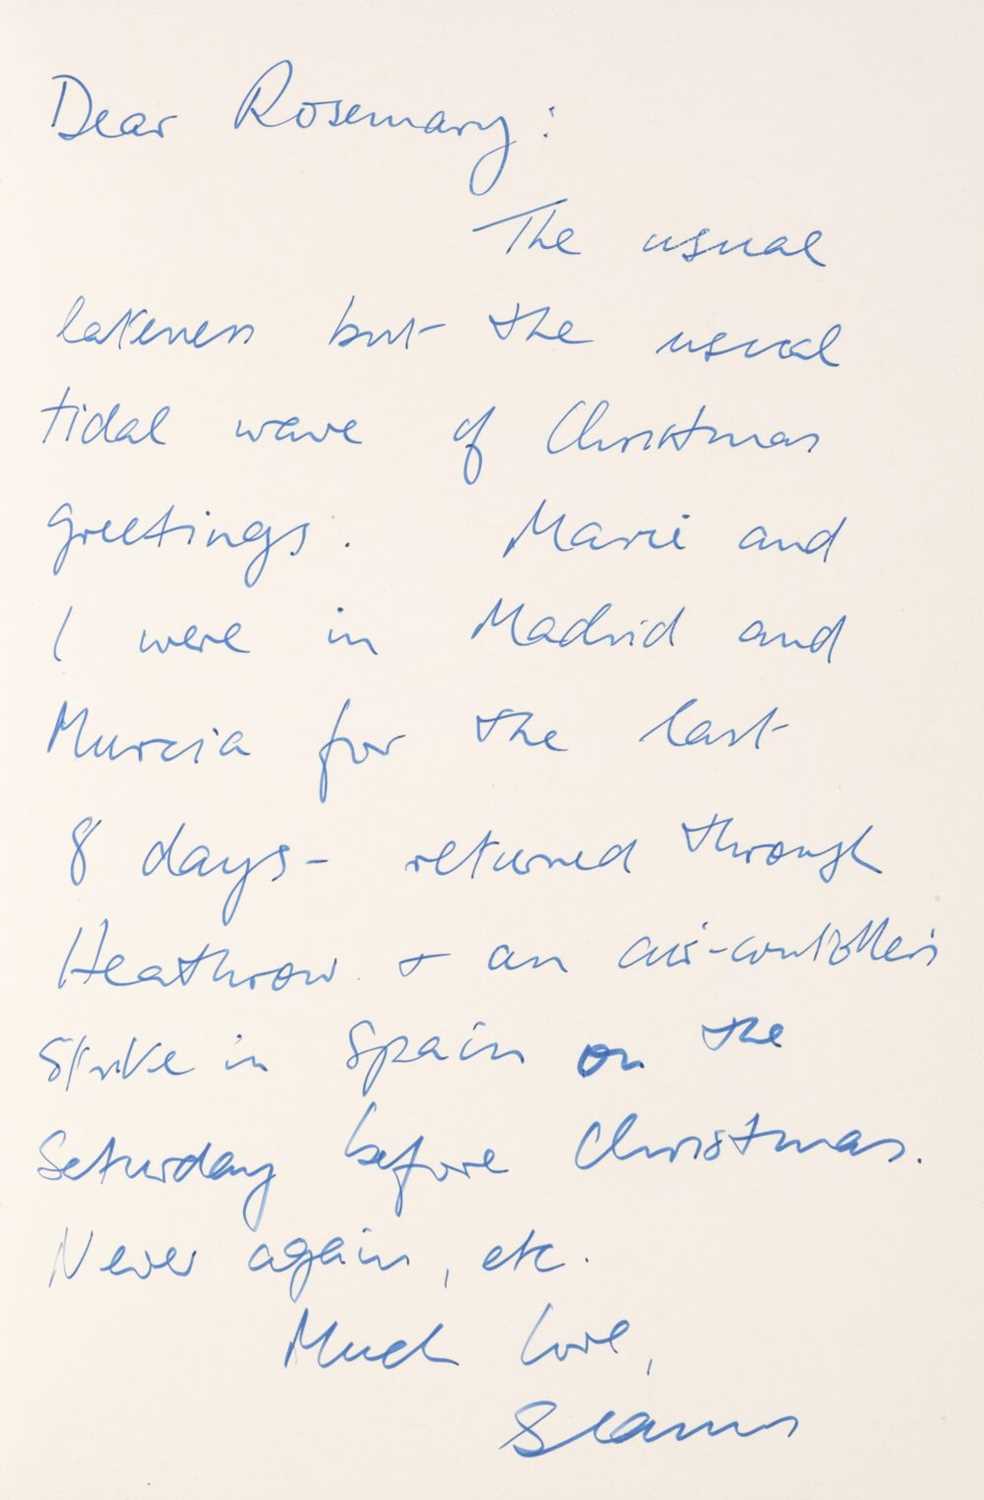 Dear Rosemary:
The usual
lateness but the usual
tidal wave of Christmas
greetings. Marie and
I were in Madrid and
Murcia for the last
8 days - returned through
Heathrow + an air-controllers
strike in Spain on the
Saturday before Christmas.
Never again, etc.
Much love,
Seamus